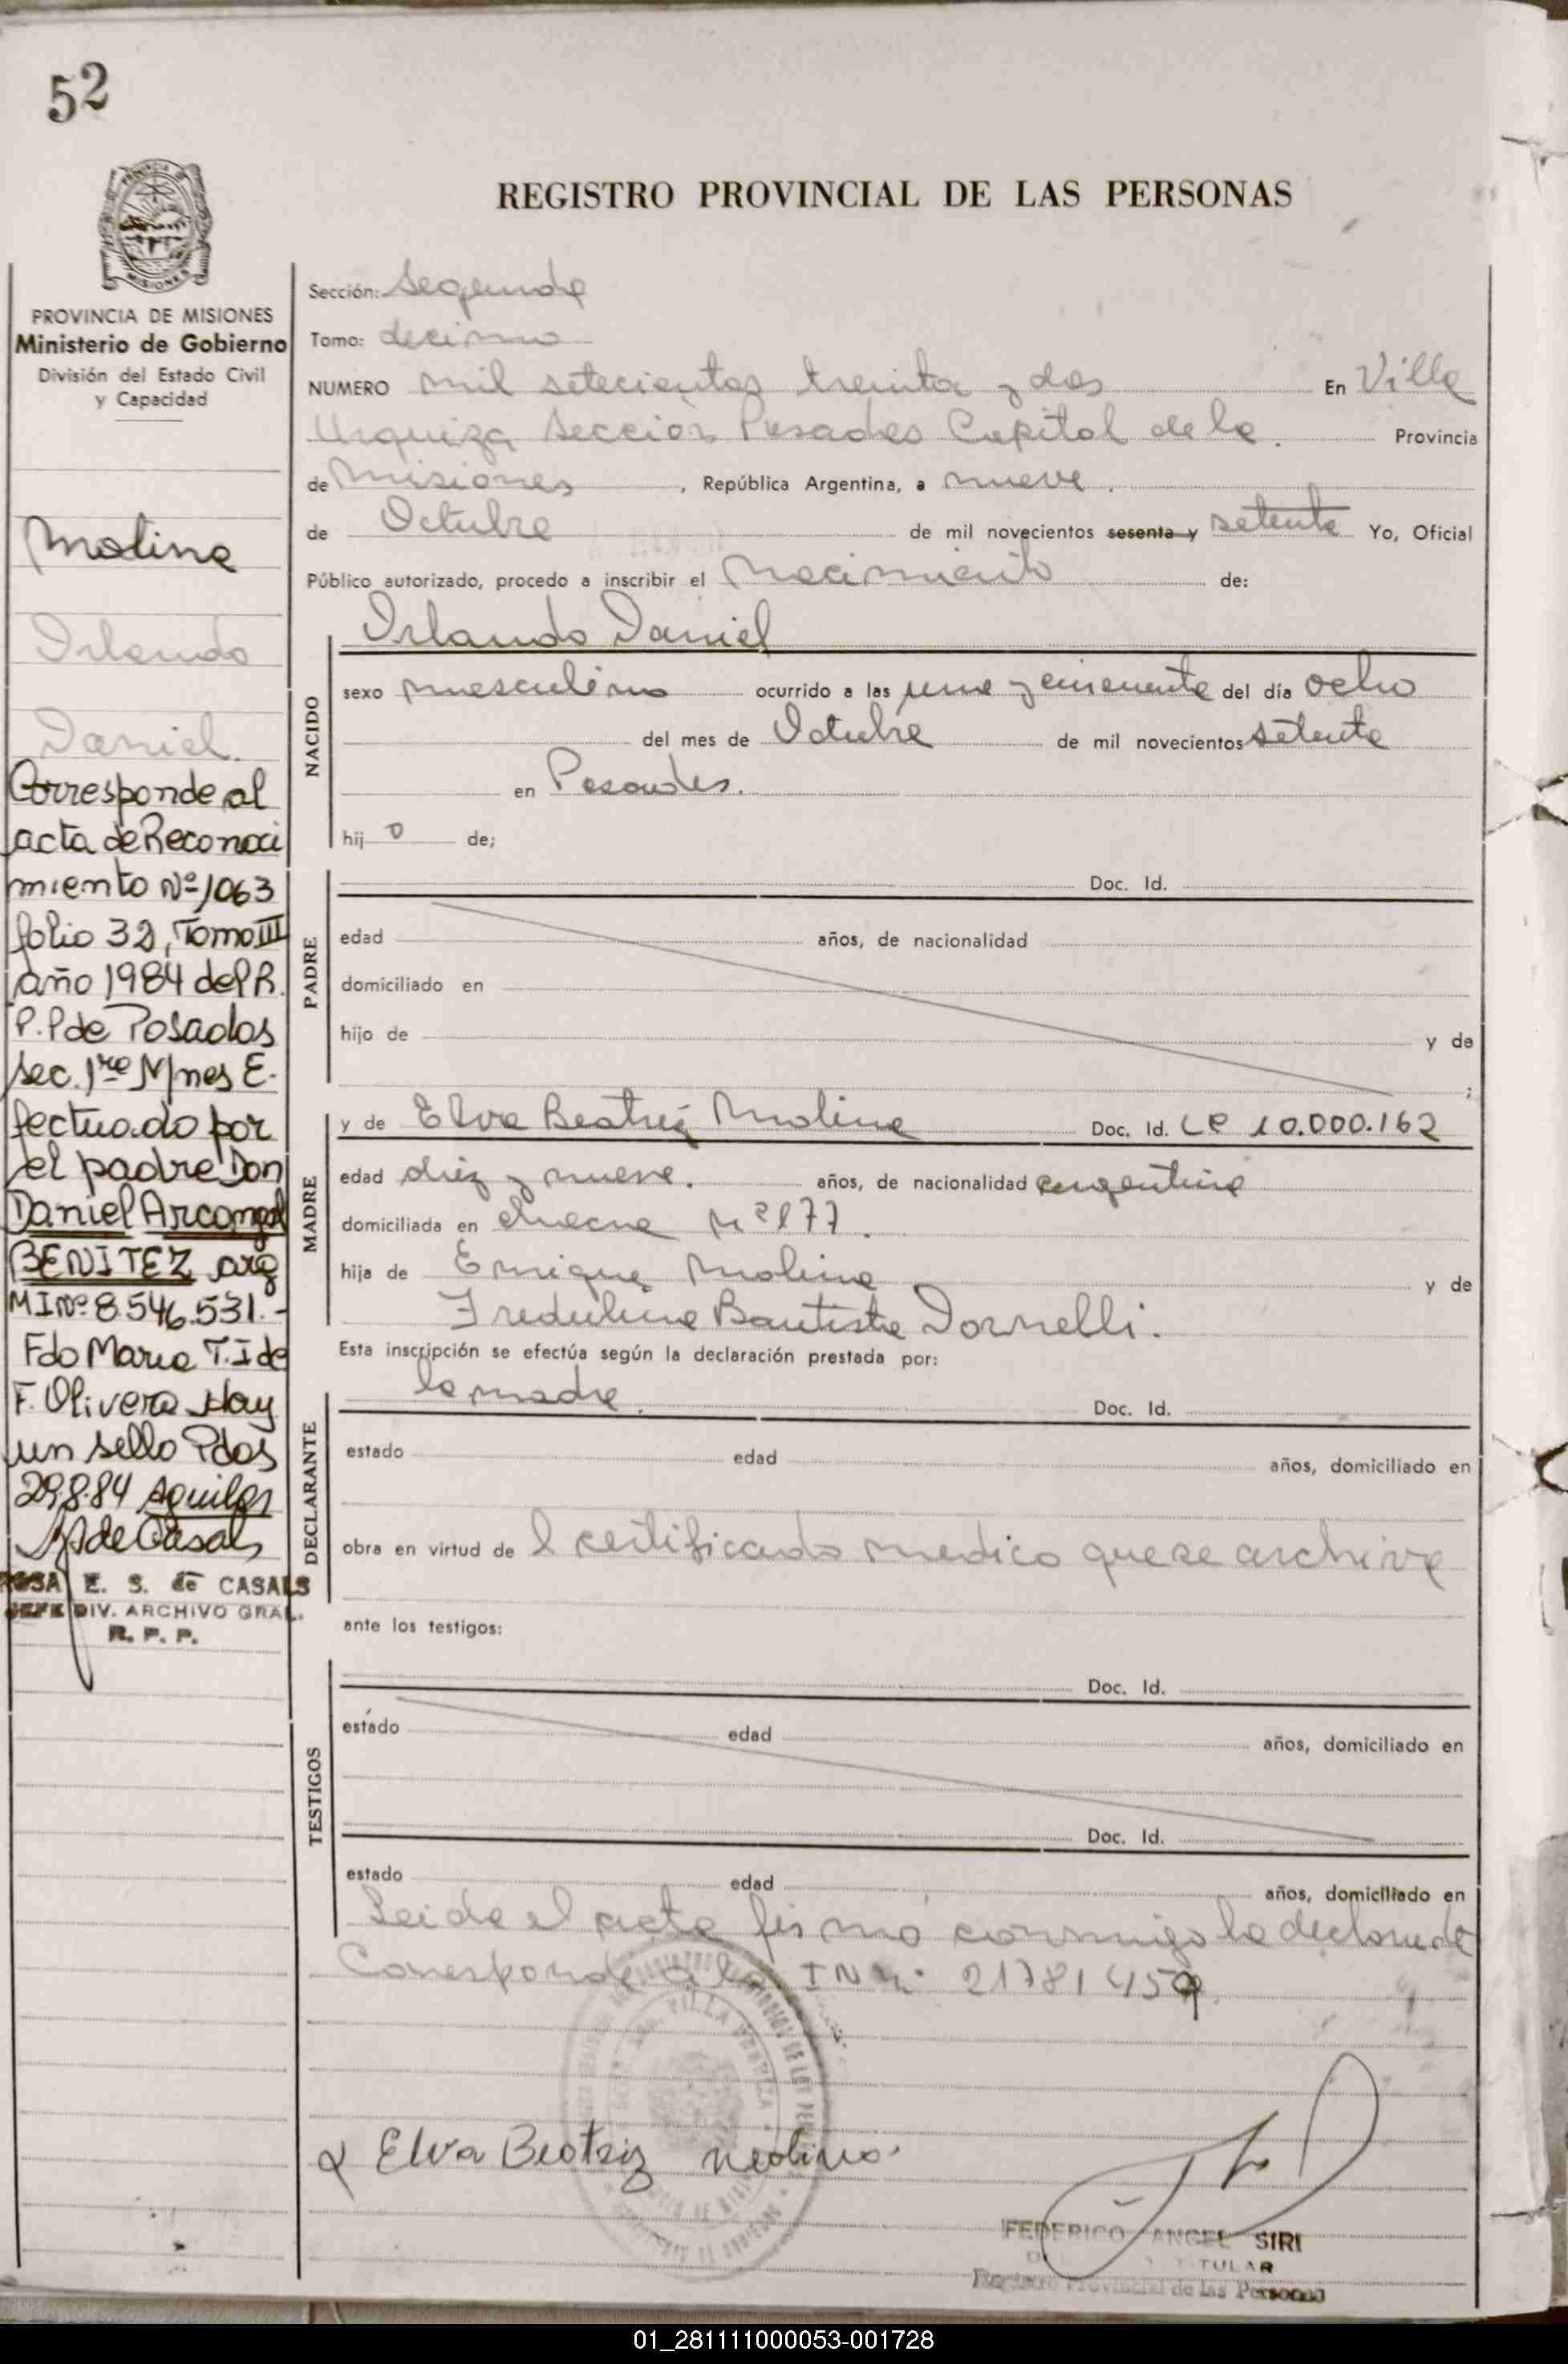 52
REGISTRO PROVINCIAL DE LAS PERSONAS
PROVINCIA DE MISIONES
Ministerio de Gobierno
División del Estado Civil
y Capacidad
Molina
Orlando
Daniel.
Corresponde al
acta de Reconoci
miento Nº 1063
folio 32, Tomo III
año 1984 del R.
P.P de Posadas
Sec. 1ra Mnes E-
fectuado por
el padre Don
Daniel Arcangel
BENITEZ arg
MI Nº 8.546.531.-
Fdo Maria T. I de
F. Olivera Hay
un sello Pdas
29.8.84 Aguilar
de Casals
ROSA E. S. de CASALS
JEFE DIV. ARCHIVO GRAL.
R. P. P.
Sección: Segunda
Tomo: decimo
NUMERO mil setecientos treinta y dos En Villa
Urquiza Sección Posadas Capital de la. Provincia
de Misiones, República Argentina, a nueve.
de Octubre de mil novecientos sesenta y setenta Yo, Oficial
Público autorizado, procedo a inscribir el Nacimiento de:
Orlando Daniel
NACIDO
sexo masculino ocurrido a las una y cincuenta del día ocho
del mes de Octubre de mil novecientos setenta
en Posadas.
hijo de;
PADRE
Doc. Id.
edad años, de nacionalidad
domiciliado en
hijo de y de
;
MADRE
y de Elva Beatriz Molina Doc. Id. LC 10.000.162
edad diez y nueve. años, de nacionalidad argentina
domiciliada en chacra Nº 177.
hija de Enrique Molina y de
Bautista Dornelli.
Esta inscripción se efectúa según la declaración prestada por:
DECLARANTE
la madre. Doc. Id.
estado edad años, domiciliado en
obra en virtud de l certificado medico que se archiva
ante los testigos:
TESTIGOS
Doc. Id.
estado edad años, domiciliado en
Doc. Id.
estado edad años, domiciliado en
Leida el acta firmó conmigo la declarante
Corresponde a la IN Nº 21781459.
VILLA URQUIZA
Elva Beatriz Molina
FEDERICO ANGEL SIRI
TITULAR
Registro Provincial de las Personas
01_281111000053-001728